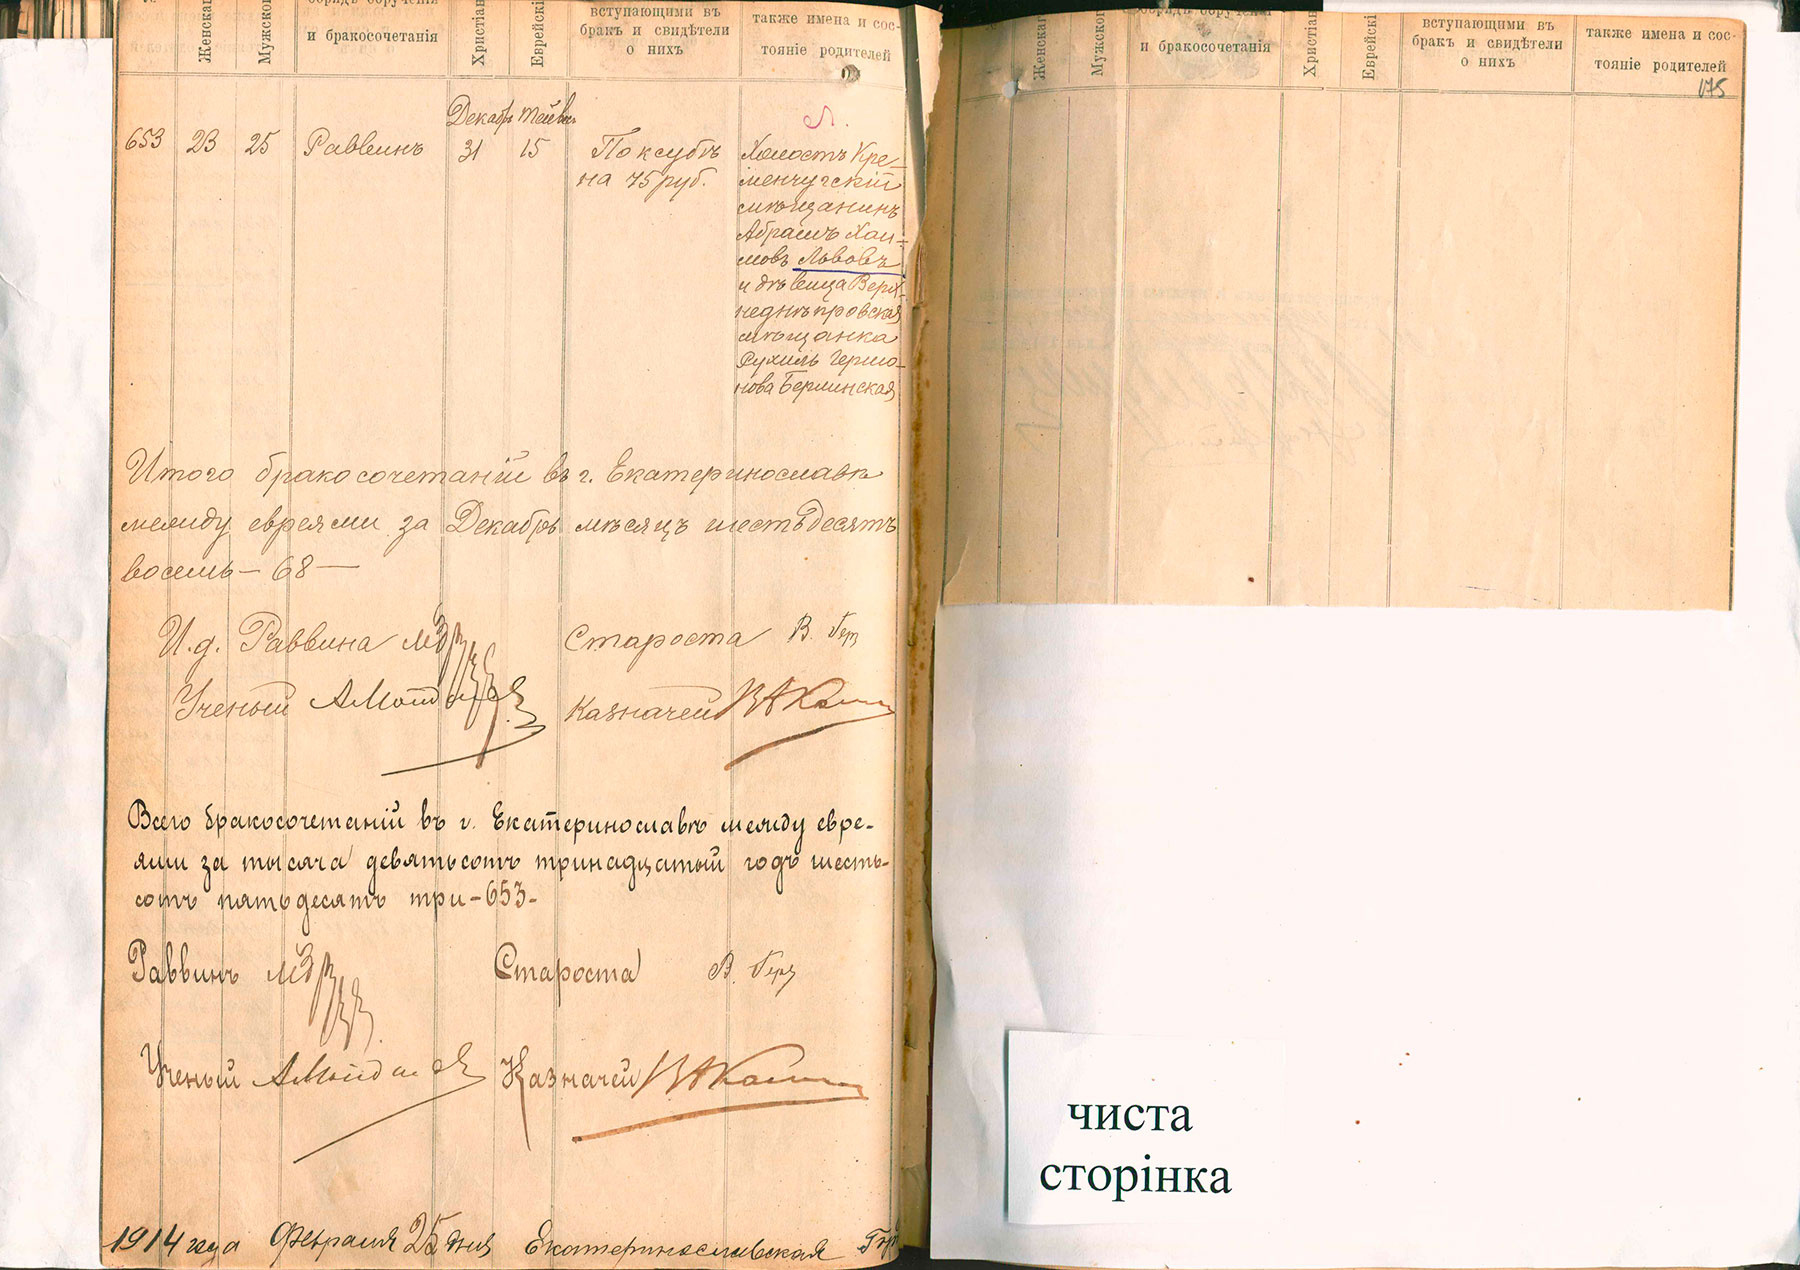 Женская
Мужской
обрядъ обрученія
и бракосочетанія
Христіан
Еврейскі
вступающими въ
бракъ и свидѣтели
о нихъ
также имена и сос-
тояніе родителей
Декабрь
653
23
25
Раввинъ
31
15
По ксубѣ
на 75 руб.
Холостъ Кре-
менчугскій
мѣщанинъ
Абрамъ Хаи-
мовъ Львовъ
и дѣвица Верх-
неднѣпровская
мѣщанка
Рухиль Гершо-
нова Берлинская
Итого бракосочетаній въ г. Екатеринославѣ
между евреями за Декабрь мѣсяцъ шестьдесятъ
восемь — 68 —
И.д. Раввина
Староста В.
Ученый
Казначей
Всего бракосочетаній въ г. Екатеринославѣ между евре-
ями за тысяча девятьсотъ тринадцатый годъ шесть-
сотъ пятьдесятъ три - 653 -
Раввинъ
Староста В.
Ученый
Казначей
1914 года Февраля 25 дня Екатеринославская Гор
Женская
Мужского
обрядъ обрученія
и бракосочетанія
Христіан
Еврейскі
вступающими въ
бракъ и свидѣтели
о нихъ
также имена и сос-
тояніе родителей
175
чиста
сторінка